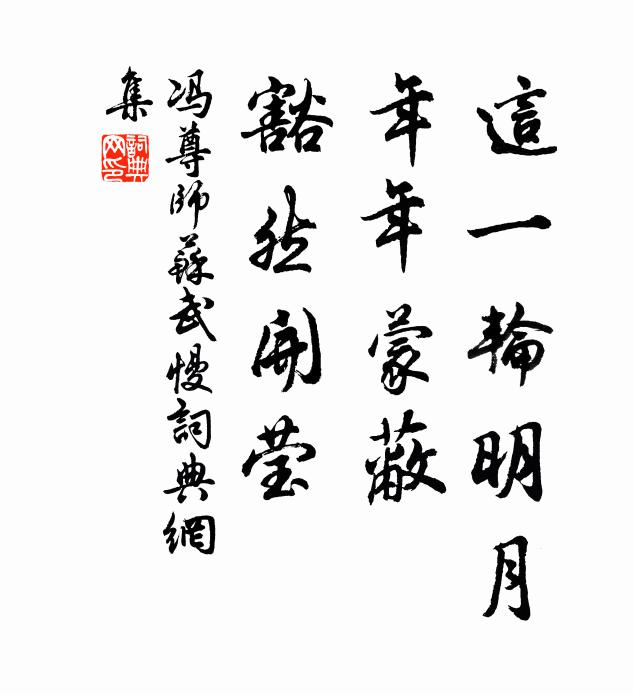 這一輪明月
年年蒙蔽
豁然開瑩
冯尊師蘇武慢詞典網
集
詞典
网印